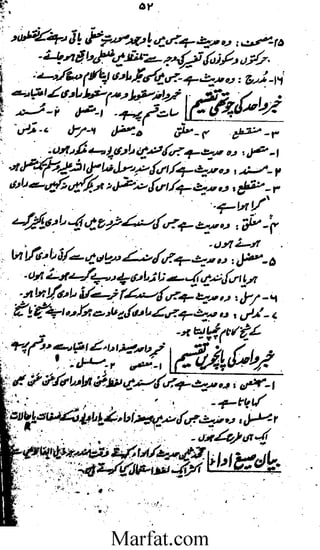 ۵۲
۱۵۔ مصحف : وہ حدیث ہے جس میں باوجود صورت خطی باقی رہنے کے نقطوں و
حرکتوں و سکونوں کی تغیر کی وجہ سے تلفظ میں غلطی واقع ہو جائے۔
۱۶۔ مدرج : وہ حدیث ہے جس میں کسی جگہ راوی اپنا کلام درج کر دے۔
خبر واحد کی چوتھی تقسیم
خبر واحد سقوط و عدم سقوط راوی کے اعتبار سے
سات قسم پر ہے۔ ۱۔ متصل ۲۔ مسند
۳۔ منقطع ۴۔ معلق ۵۔ معضل ۶۔ مرسل ۷۔ مدلس
۱۔ متصل : وہ حدیث ہے جس کی سند میں راوی پورے مذکور ہوں۔
۲۔ مسند : وہ حدیث ہے کہ اس کی سند رسول خدا صلی اللہ علیہ وسلم تک متصل ہو
۳۔ منقطع : وہ حدیث ہے کہ اس کی سند متصل نہ ہو بلکہ کہیں نہ کہیں سے راوی
گرا ہوا ہے۔
۴۔ معلق : وہ حدیث ہے جس کی سند کے شروع میں ایک راوی یا کثیر گرے
ہوئے ہوں۔
۵۔ معضل : وہ حدیث ہے جس کی سند کے درمیان میں سے کوئی راوی گرا ہوا
ہو یا اس کی سند میں ایک سے زائد راوی پے در پے گرے ہوئے ہوں۔
۶۔ مرسل : وہ حدیث ہے جس کی سند کے آخر سے کوئی راوی گرا ہوا ہو۔
۷۔ مدلس : وہ حدیث ہے جس کے راوی کی یہ عادت ہو کہ وہ اپنے شیخ یا شیخ
کے شیخ کا نام چھپا لیتا ہو۔
خبر واحد کی پانچویں تقسیم
خبر واحد صیغ اداء کے اعتبار سے دو قسم پر ہے
۱۔ معنعن ۲۔ مسلسل۔
۱۔ معنعن : وہ حدیث ہے جس کی سند میں لفظ عن ہو اور اس کو عن عن بھی
کہا جاتا ہے۔
۲۔ مسلسل : وہ حدیث جس کی سند میں صیغ اداء کے یا راویوں کے صفات یا حالات
ایک ہی طرح کے ہوں۔
بیان صیغ اداء
محدثین حدیث کو اداء کرتے وقت مندرجہ ذیل الفاظ میں سے
اکثر ایک لفظ استعمال کیا کرتے ہیں۔
Marfat.com